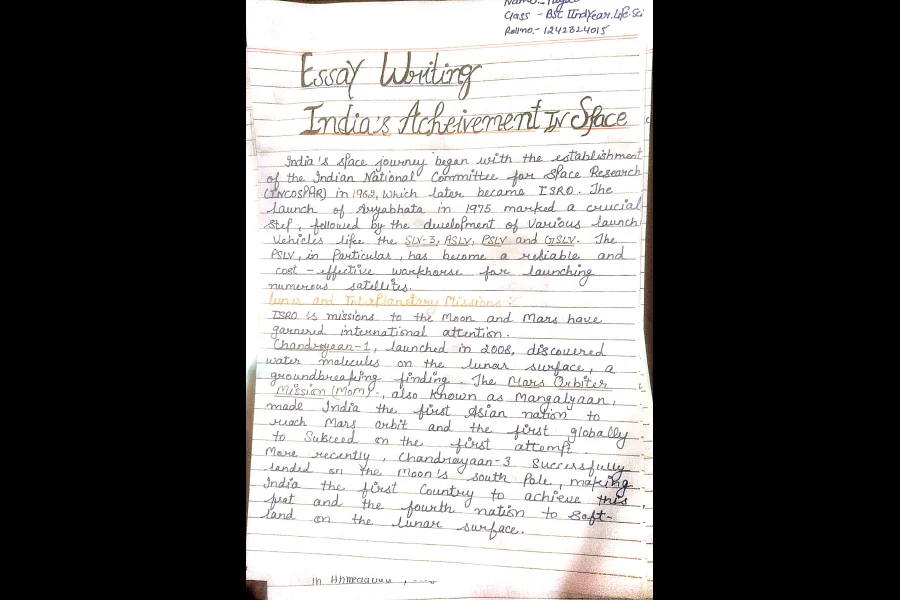 Class - BSC IIndYear.Life.Sci
Rollno.- 1242824015
Essay Writing
India's Acheivement In Space
India's space journey began with the establishment
of the Indian National Committee for Space Research
(INCOSPAR) in 1962, which later became ISRO. The
launch of Aryabhata in 1975 marked a crucial
step, followed by the development of various launch
vehicles like the SLV-3, ASLV, PSLV and GSLV. The
PSLV, in Particular, has become a reliable and
cost-effective workhorse for launching
numerous satellites.
Lunar and Interplanetary Missions :
ISRO's missions to the Moon and Mars have
garnered international attention.
Chandrayaan-1, launched in 2008, discovered
water molecules on the lunar surface, a
groundbreaking finding. The Mars Orbiter
Mission (MOM)., also known as Mangalyaan,
made India the first Asian nation to
reach Mars orbit and the first globally
to Subceed on the first attempt.
More recently, Chandrayaan-3 Successfully
landed on the Moon's south Pole, making
India the first Country to achieve this
feat and the fourth nation to soft-
land on the lunar surface.